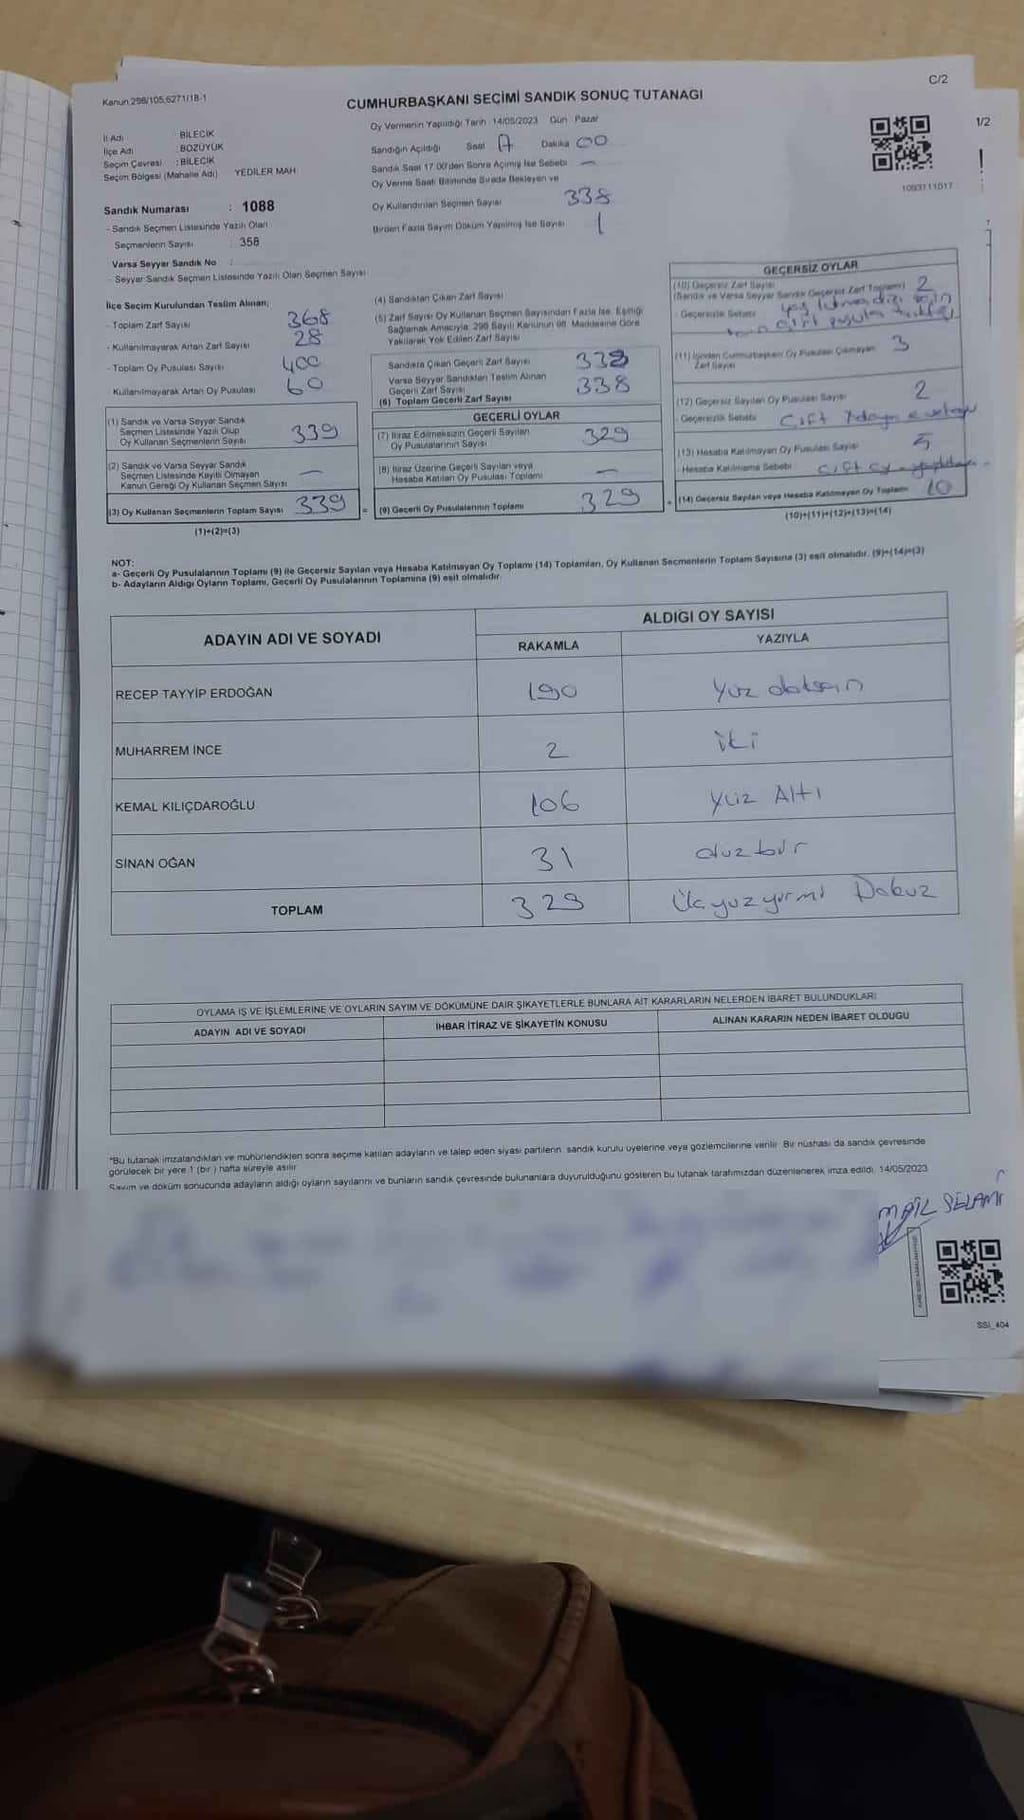 Kanun 298/105,6271/18-1
C/2
CUMHURBAŞKANI SEÇİMİ SANDIK SONUÇ TUTANAĞI
1/2
Oy Vermenin Yapıldığı Tarih 14/05/2023 Gün Pazar
İl Adı : BİLECİK
İlçe Adı : BOZÜYÜK
Seçim Çevresi : BİLECİK
Seçim Bölgesi (Mahalle Adı) YEDİLER MAH
Sandığın Açıldığı Saat Dakika 00
Sandık Saat 17.00'den Sonra Açılmış İse Sebebi —
Oy Verme Saati Bitiminde Sırada Bekleyen ve
Oy Kullandırılan Seçmen Sayısı 338
Birden Fazla Sayım Döküm Yapılmış İse Sayısı 1
1093111017
Sandık Numarası : 1088
- Sandık Seçmen Listesinde Yazılı Olan
Seçmenlerin Sayısı : 358
Varsa Seyyar Sandık No :
- Seyyar Sandık Seçmen Listesinde Yazılı Olan Seçmen Sayısı
İlçe Seçim Kurulundan Teslim Alınan;
- Toplam Zarf Sayısı 368
- Kullanılmayarak Artan Zarf Sayısı 28
- Toplam Oy Pusulası Sayısı 400
- Kullanılmayarak Artan Oy Pusulası 60
(1) Sandık ve Varsa Seyyar Sandık
Seçmen Listesinde Yazılı Olup
Oy Kullanan Seçmenlerin Sayısı 339
(2) Sandık ve Varsa Seyyar Sandık
Seçmen Listesinde Kayıtlı Olmayan
Kanun Gereği Oy Kullanan Seçmen Sayısı —
(3) Oy Kullanan Seçmenlerin Toplam Sayısı 339
(1)+(2)=(3)
(4) Sandıktan Çıkan Zarf Sayısı
(5) Zarf Sayısı Oy Kullanan Seçmen Sayısından Fazla İse, Eşitliği
Sağlamak Amacıyla, 298 Sayılı Kanunun 98. Maddesine Göre
Yakılarak Yok Edilen Zarf Sayısı
Sandıkta Çıkan Geçerli Zarf Sayısı 338
Varsa Seyyar Sandıktan Teslim Alınan
Geçerli Zarf Sayısı 338
(6) Toplam Geçerli Zarf Sayısı
GEÇERLİ OYLAR
(7) İtiraz Edilmeksizin Geçerli Sayılan
Oy Pusulalarının Sayısı 329
(8) İtiraz Üzerine Geçerli Sayılan veya
Hesaba Katılan Oy Pusulası Toplamı —
(9) Geçerli Oy Pusulalarının Toplamı 329
GEÇERSİZ OYLAR
(10) Geçersiz Zarf Sayısı
(Sandık ve Varsa Seyyar Sandık Geçersiz Zarf Toplamı) 2
- Geçersizlik Sebebi
(11) İçinden Cumhurbaşkanı Oy Pusulası Çıkmayan
Zarf Sayısı 3
(12) Geçersiz Sayılan Oy Pusulası Sayısı 2
- Geçersizlik Sebebi Çift Adaya
(13) Hesaba Katılmayan Oy Pusulası Sayısı 5
- Hesaba Katılmama Sebebi çift oy
(14) Geçersiz Sayılan veya Hesaba Katılmayan Oy Toplamı 10
(10)+(11)+(12)+(13)=(14)
NOT:
a- Geçerli Oy Pusulalarının Toplamı (9) ile Geçersiz Sayılan veya Hesaba Katılmayan Oy Toplamı (14) Toplamları, Oy Kullanan Seçmenlerin Toplam Sayısına (3) eşit olmalıdır. (9)+(14)=(3)
b- Adayların Aldığı Oyların Toplamı, Geçerli Oy Pusulalarının Toplamına (9) eşit olmalıdır.
ADAYIN ADI VE SOYADI
ALDIĞI OY SAYISI
RAKAMLA YAZIYLA
RECEP TAYYİP ERDOĞAN 190 Yüz doksan
MUHARREM İNCE 2 iki
KEMAL KILIÇDAROĞLU 106 Yüz Altı
SİNAN OĞAN 31 otuz bir
TOPLAM 329 Üçyüzyirmi Dokuz
OYLAMA İŞ VE İŞLEMLERİNE VE OYLARIN SAYIM VE DÖKÜMÜNE DAİR ŞİKAYETLERLE BUNLARA AİT KARARLARIN NELERDEN İBARET BULUNDUKLARI
ADAYIN ADI VE SOYADI İHBAR İTİRAZ VE ŞİKAYETİN KONUSU ALINAN KARARIN NEDEN İBARET OLDUĞU
*Bu tutanak imzalandıktan ve mühürlendikten sonra seçime katılan adayların ve talep eden siyasi partilerin sandık kurulu üyelerine veya gözlemcilerine verilir. Bir nüshası da sandık çevresinde
görülecek bir yere 1 (bir) hafta süreyle asılır.
Sayım ve döküm sonucunda adayların aldığı oyların sayılarını ve bunların sandık çevresinde bulunanlara duyurulduğunu gösteren bu tutanak tarafımızdan düzenlenerek imza edildi. 14/05/2023
SELAMİ
SSİ_404